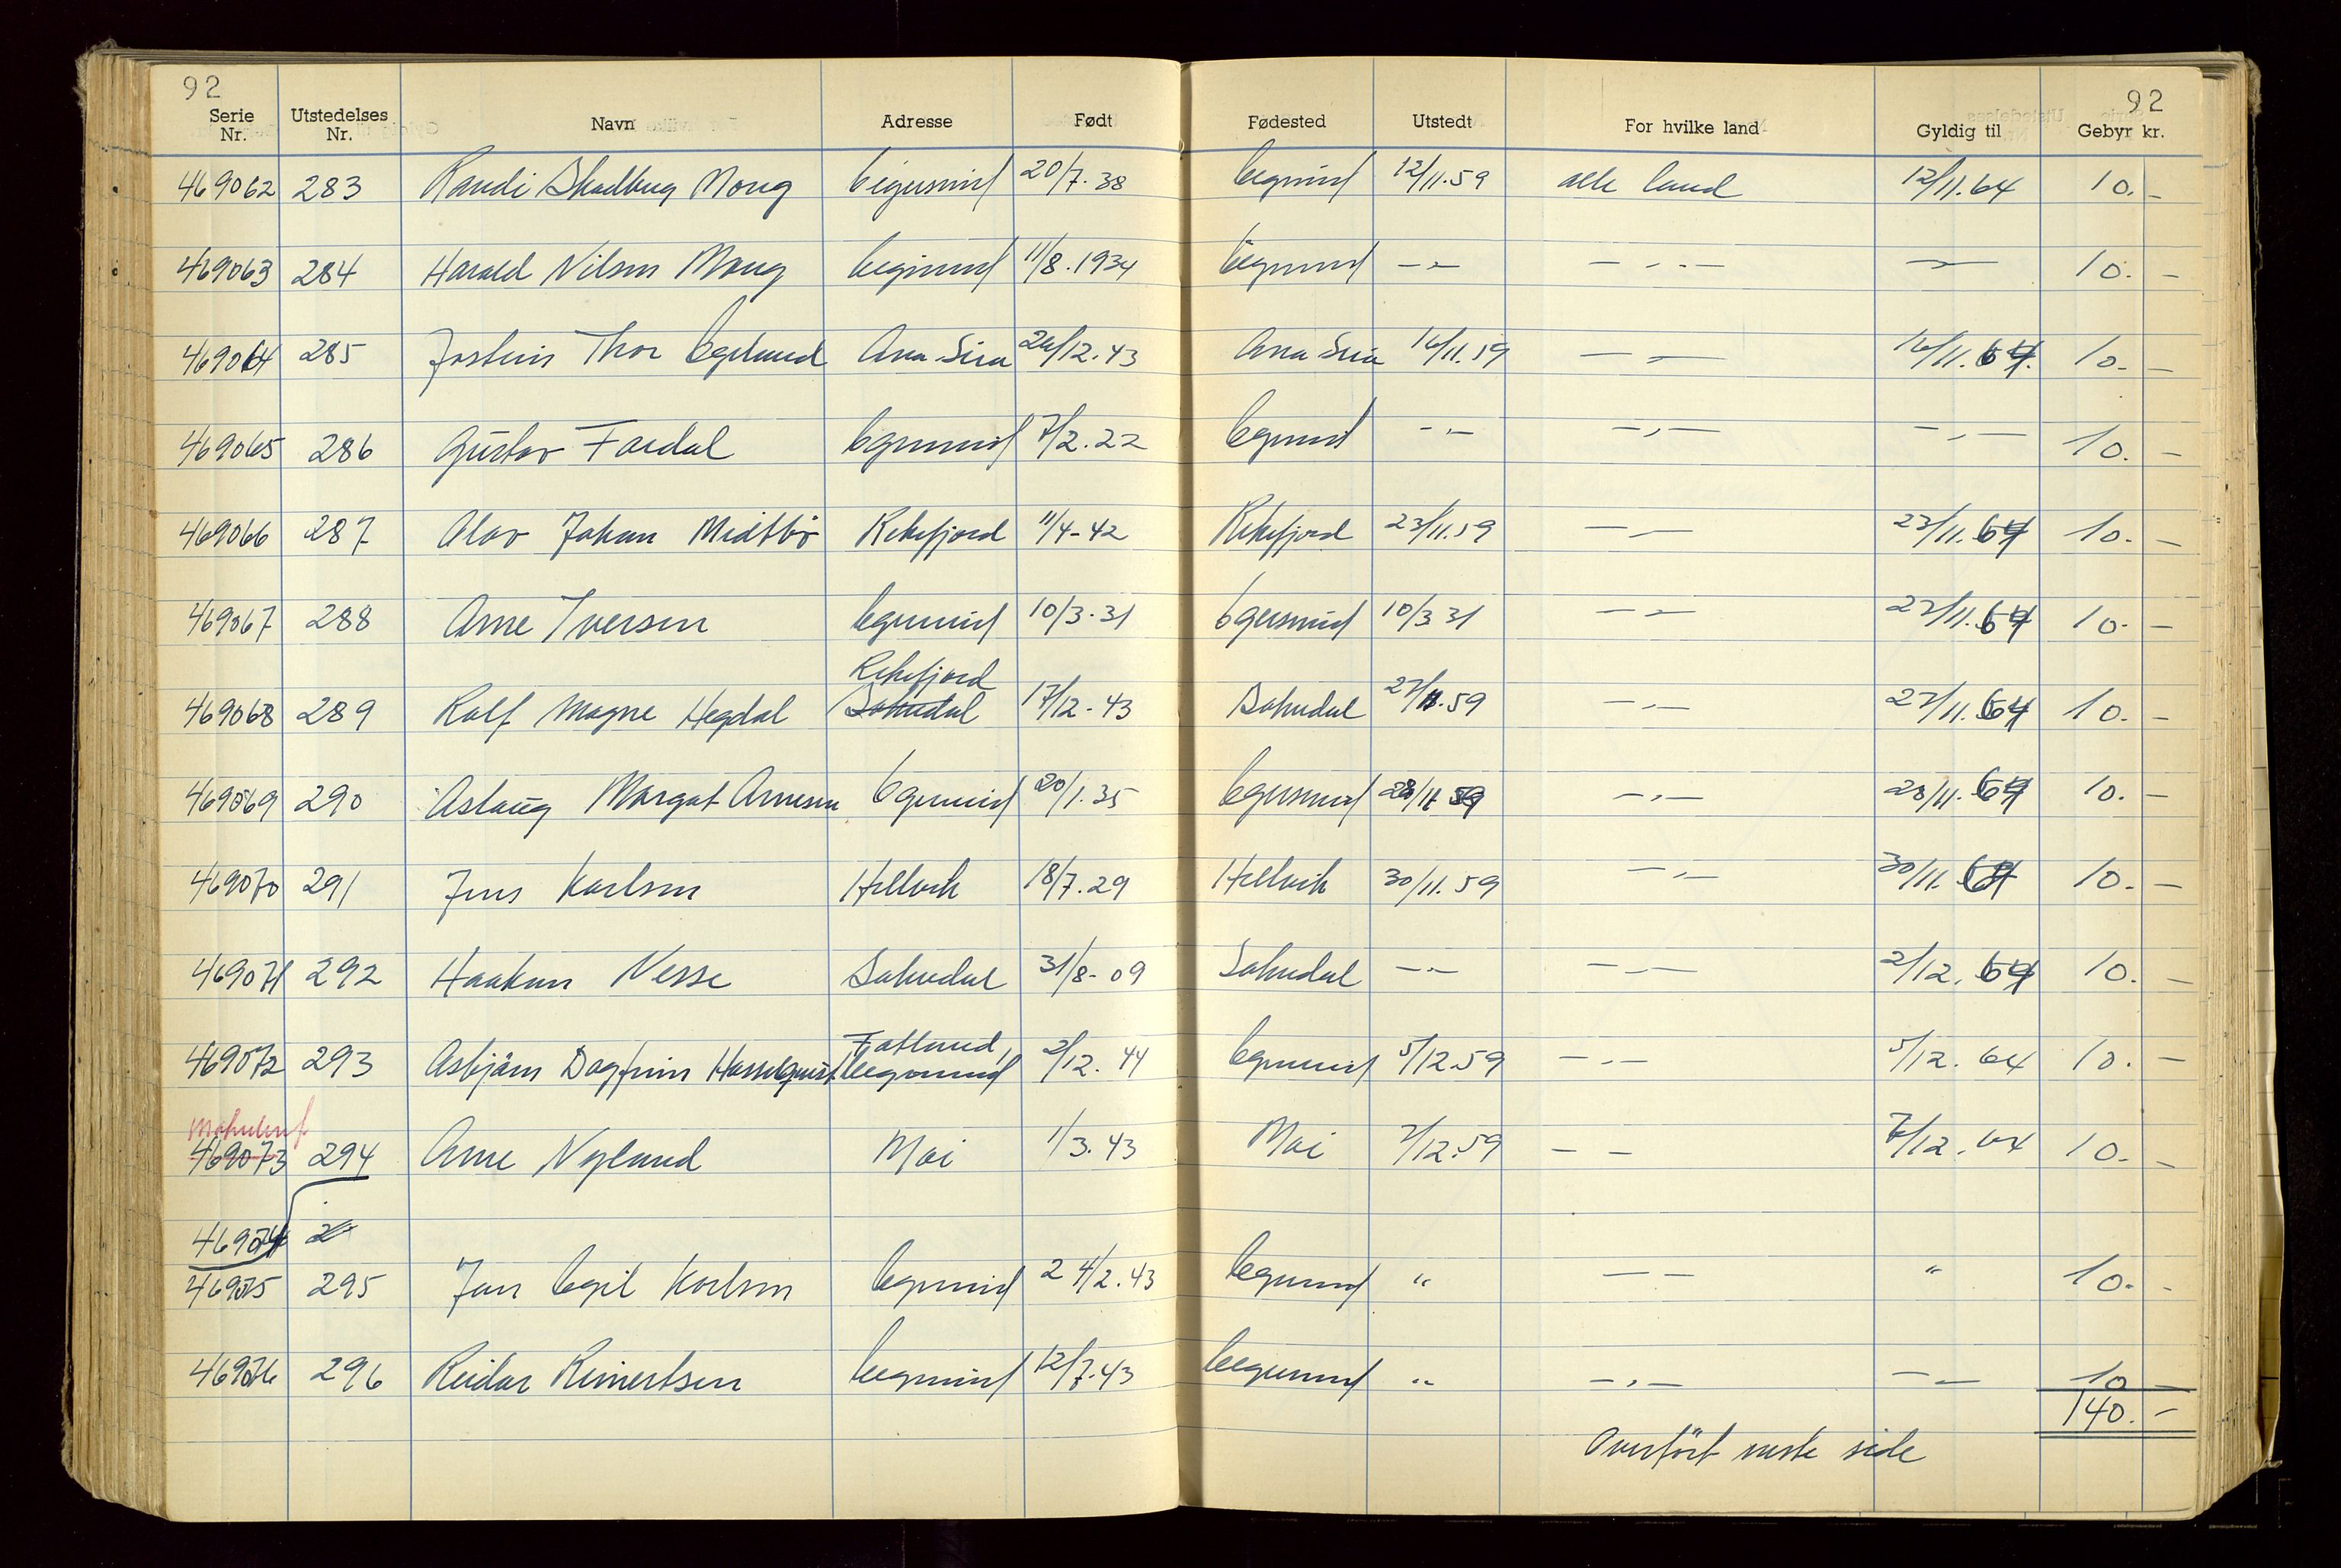 92 92
Serie Nr. Utstedelses Nr. Navn Adresse Født Fødested Utstedt For hvilke land Gyldig til Gebyr kr.
469062 283 Randi Skadberg Mong Eigersund 20/7.38 Eigersund 12/11.59 alle land 12/11.64 10.-
469063 284 Harald Nilsen Mong Eigersund 11/8.1934 Eigersund -"- -"- -"- 10.-
469064 285 Jostein Thor Egelund Ana Sira 26/12.43 Ana Sira 16/11.59 -"- 16/11.64. 10.-
469065 286 Gustav Fardal Egersund 7/2.22 Egersund -"- -"- -"- 10.-
469066 287 Olav Johan Midtbø Rekefjord 11/4-42 Rekefjord 23/11.59 -"- 23/11.64 10.-
469067 288 Arne Iversen Egersund 10/3.31 Egersund 10/3 31 -"- 27/11.64 10.-
Rekefjord
469068 289 Rolf Magne Hegdal Sokndal 17/12-43 Sokndal 27/11.59 -"- 27/11.64 10.-
469069 290 Aslaug Margot Arnesen Egersund 20/1.35 Egersund 28/11 59 -"- 28/11.64 10.-
469070 291 Jens Karlsen Hellvik 18/7.29 Hellvik 30/11.59 -"- 30/11.64 10.-
469071 292 Haakon Nesse Sokndal 31/8-09 Sokndal -"- -"- 2/12.64 10.-
Fotland,
469072 293 Asbjørn Dagfinn Hasselquist Eegersund 2/12.44 Egersund 5/12.59 -"- 5/12.64 10.-
Makulert
469073 294 Arne Nyland Moi 1/3.43 Moi 7/12.59 - - 7/12.64 10.-
469074 2
46975 295 Jan Egil Karlsen Egersund 24/2.43 Egersund " - - " 10.-
469076 296 Reidar Reinertsen Eegersund 12/7.43 Eegersund " -"- - - 10 -
140.-
Overført neste side